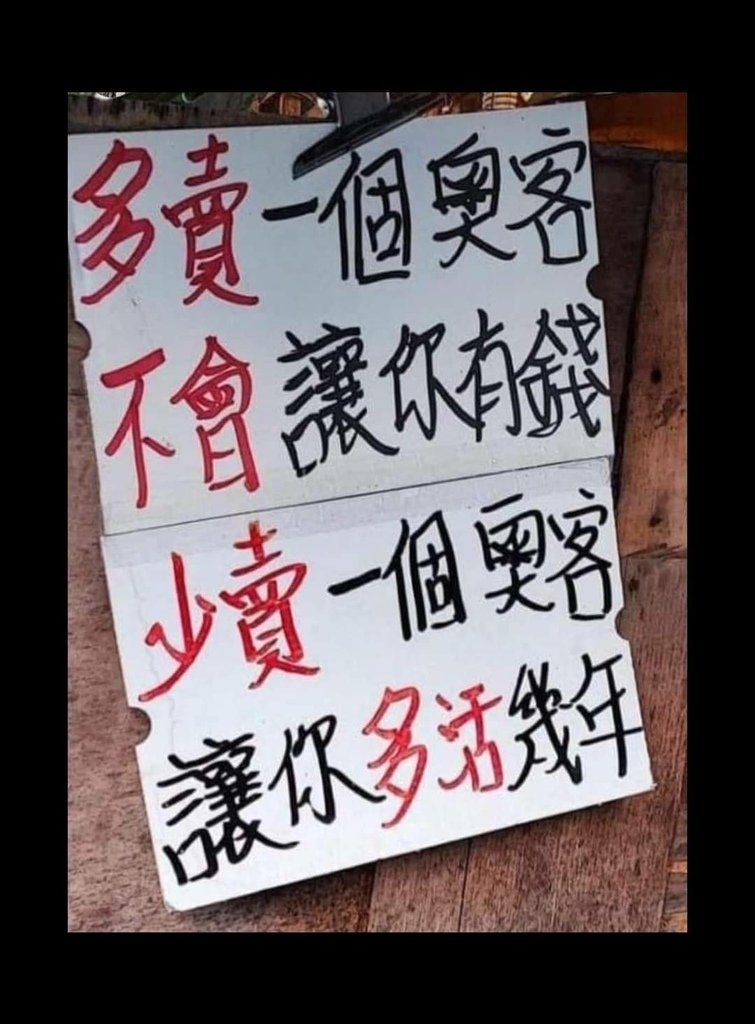 多賣一個奧客
不會讓你有錢
少賣一個奧客
讓你多活幾年